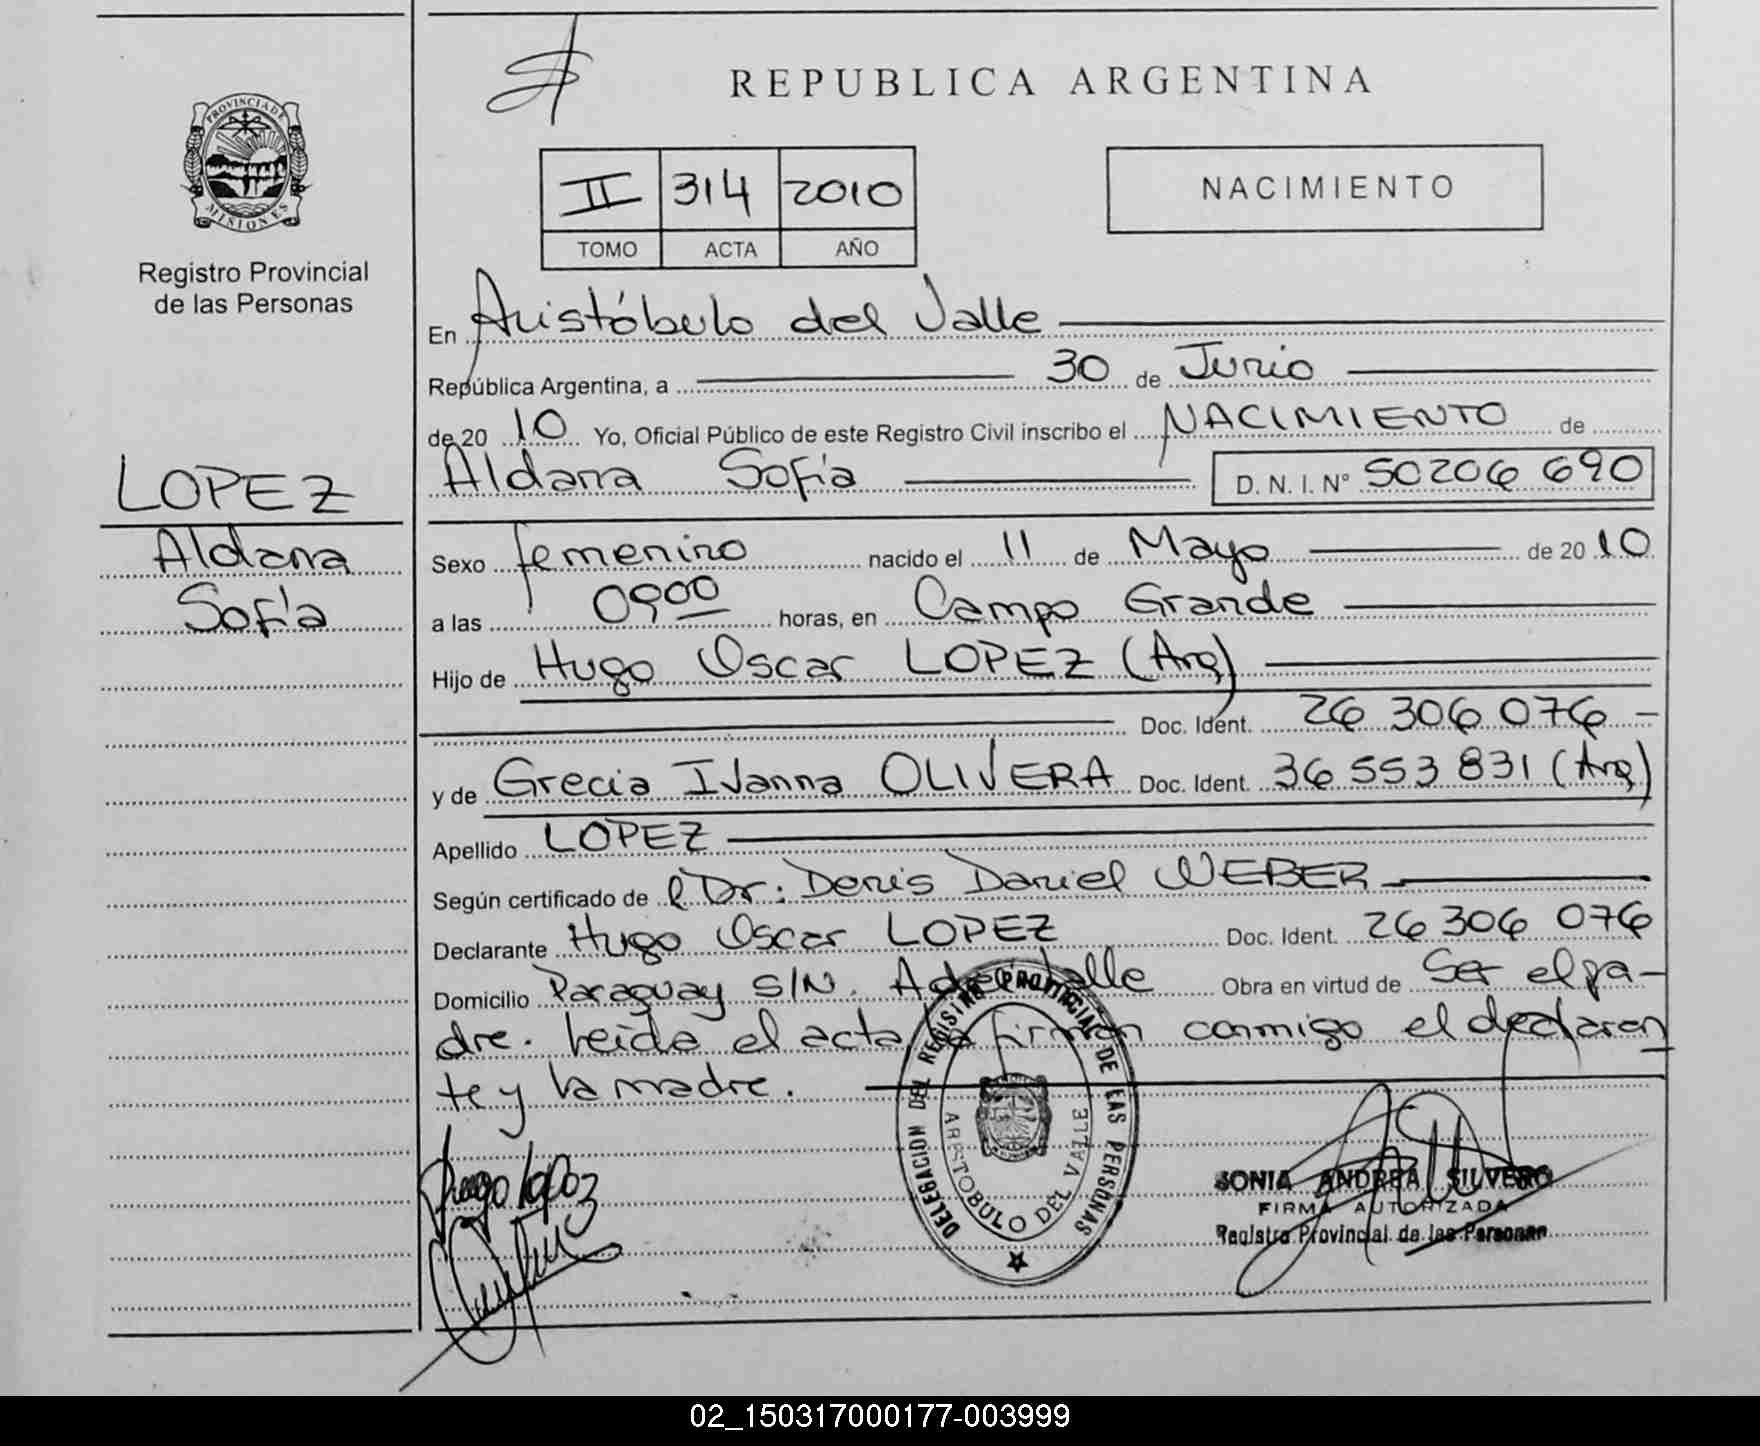 REPUBLICA ARGENTINA
PROVINCIA DE
MISIONES
Registro Provincial
de las Personas
II 314 2010
TOMO ACTA AÑO
NACIMIENTO
En Aristóbulo del Valle
República Argentina, a 30 de Junio
de 20 10 Yo, Oficial Público de este Registro Civil inscribo el NACIMIENTO de
LOPEZ
Aldana Sofía D. N. I. Nº 50206 690
Aldana
Sofía
Sexo femenino nacido el 11 de Mayo de 20 10
a las 0900 horas, en Campo Grande
Hijo de Hugo Oscar LOPEZ (Arg)
Doc. Ident. 26 306 076 -
y de Grecia Ivanna OLIVERA Doc. Ident. 36 553 831 (Arg)
Apellido LOPEZ
Según certificado de l Dr: Denis Daniel WEBER
Declarante Hugo Oscar LOPEZ Doc. Ident. 26 306 076
Domicilio Paraguay S/N. A del Valle Obra en virtud de Ser el pa-
dre. Leida el acta la firman conmigo el declaran
te y la madre.
DELEGACION DEL REGISTRO PROVINCIAL DE LAS PERSONAS
ARISTOBULO DEL VALLE
Hugo Lopez
SONIA ANDREA SILVERO
FIRMA AUTORIZADA
Registro Provincial de las Personas
02_150317000177-003999